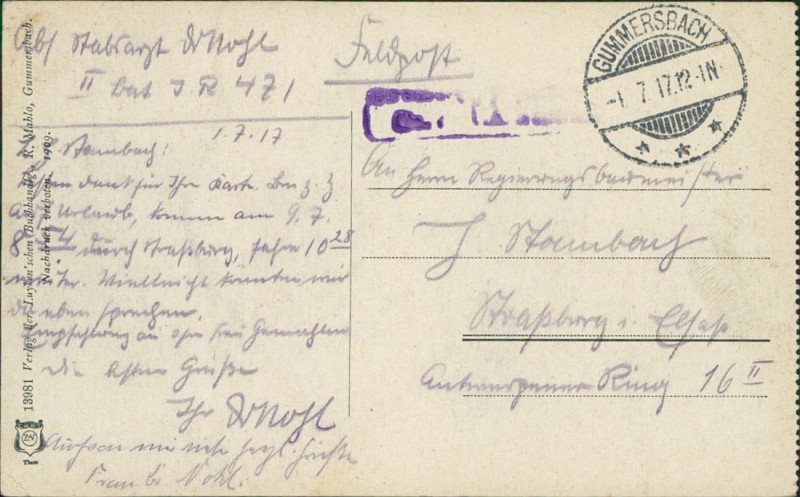 Abs Stabsarzt Dr Nohl
II Bat I. R 471
Feldpost
GUMMERSBACH
-1. 7. 17. 12-1N.
1. 7. 17
Stambach!
dank für Ihre Karte. Bin z. Z
Urlaub, komme am 9. 7.
durch Straßburg, fahre 10 28
weiter. Vielleicht könnten wir
da eben sprechen.
Empfehlung an Ihre Frau Gemahlin
die besten Grüße
Ihr Dr Nohl
Auch von mir viele herzl. Grüße
Frau Dr Nohl.
An Herrn Regierungsbaumeister
Stambach
Straßburg i. Elsaß
Antwerpener Ring 16 II
13981 Verlag der Luyken'schen Buchhandlg. R. Mahlo, Gummersbach.
Nachdruck verboten. 1909.